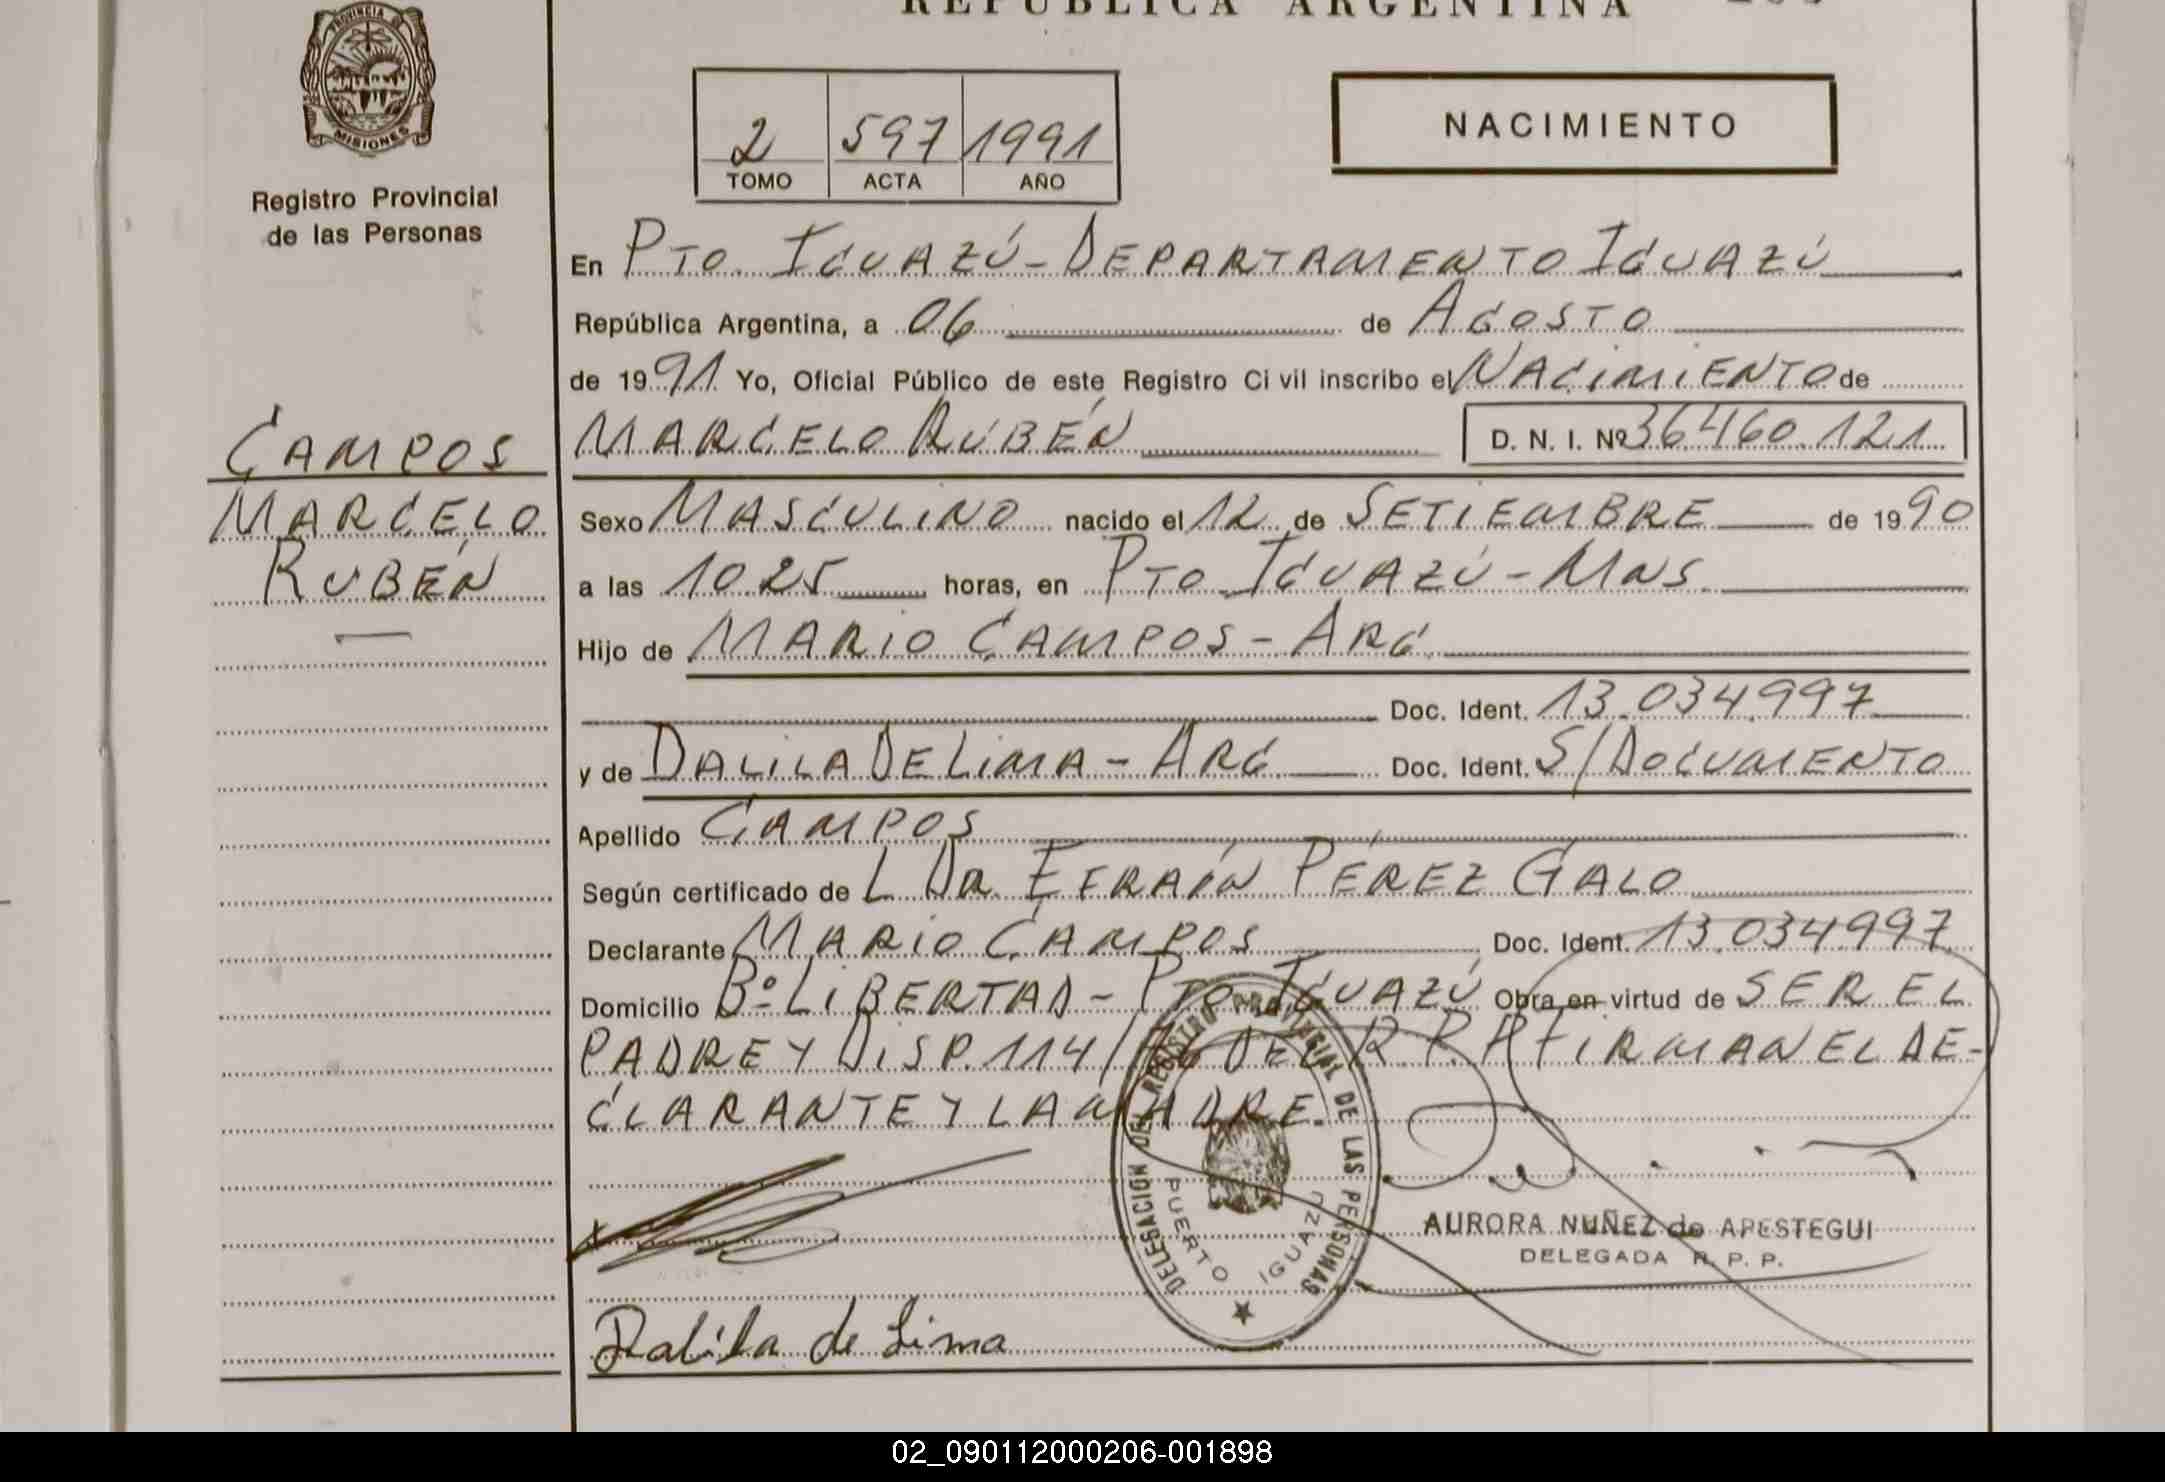 REPUBLICA ARGENTINA
PROVINCIA DE
MISIONES
Registro Provincial
de las Personas
2 597 1991
TOMO ACTA AÑO
NACIMIENTO
En PTO. IGUAZÚ - DEPARTAMENTO IGUAZÚ
República Argentina, a 06 de AGOSTO
de 1991 Yo, Oficial Público de este Registro Civil inscribo el NACIMIENTO de
MARCELO RUBÉN D. N. I. Nº 36460.121
CAMPOS
MARCELO
RUBÉN
Sexo MASCULINO nacido el 12 de SETIEMBRE de 1990
a las 10.25 horas, en PTO. IGUAZÚ - MNS.
Hijo de MARIO CAMPOS - ARG.
Doc. Ident. 13.034.997
y de DALILA DE LIMA - ARG Doc. Ident. S/DOCUMENTO
Apellido CAMPOS
Según certificado de L DR. EFRAÍN PÉREZ GALO
Declarante MARIO CAMPOS Doc. Ident. 13.034997
Domicilio Bº LIBERTAD - PTO. IGUAZÚ Obra en virtud de SER EL
PADRE Y DISP. 114/ DEL R.P.P. FIRMAN EL DE-
CLARANTE Y LA MADRE.
DELEGACION DEL REGISTRO PROVINCIAL DE LAS PERSONAS
PUERTO IGUAZU
AURORA NUÑEZ de APESTEGUI
DELEGADA R. P. P.
Dalila de Lima
02_090112000206-001898